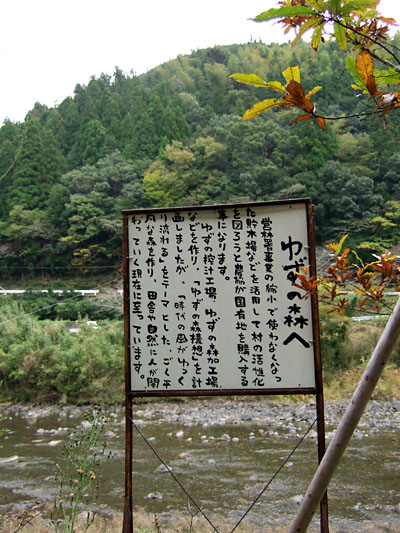 ゆずの森へ
営林署事業の縮小で使わなくなっ
た貯木場などを活用して村の活性化
を図ろうと農協が国有地を購入する
事になります。
ゆずの搾汁工場、ゆずの森加工場
などを作り、「ゆずの森構想」を計
画しましたが、“時代の風がゆっく
り流れる”をテーマとした、ごく平
凡な森を作り、田舎や自然に人が関
わっていく現在に至っています。